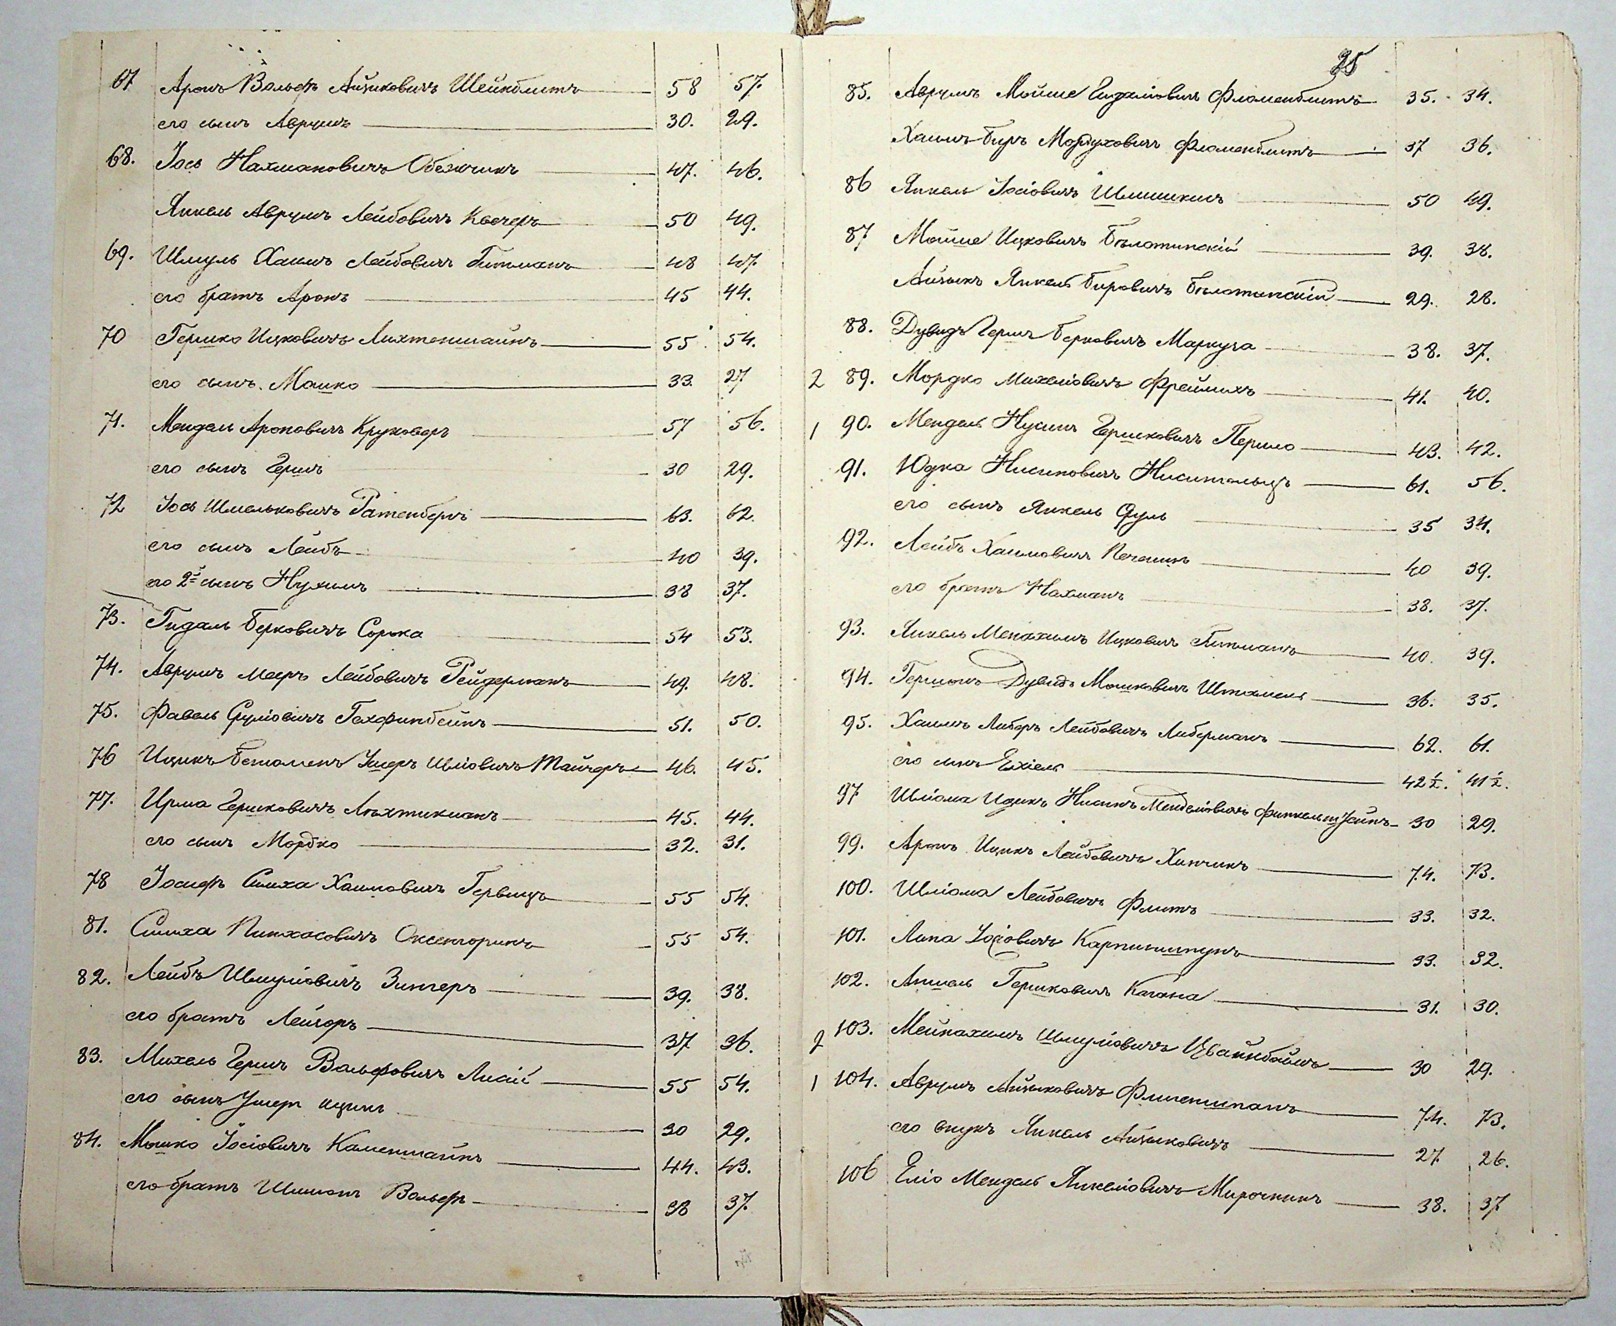 67 Аронъ Вольфъ Айзиковичъ Шейнблитъ 58 57.
его сынъ Аврумъ 30. 29.
68. Іось Нахмановичъ Обезючикъ 47. 46.
Янкель Аврумъ Лейбовичъ Квечеръ 50 49.
69. Шмуль Хаимъ Лейбовичъ Гитманъ 48 47.
его братъ Аронъ 45 44.
70 Гершко Ицковичъ Лихтенштайнъ 55 54.
его сынъ Мошко 33. 27
71. Мендель Ароновичъ Круковеръ 57 56.
его сынъ Гершъ 30 29.
72 Іось Шмельковичъ Ратенбергъ 63. 62.
его сынъ Лейбъ 40 39.
его 2й сынъ Нухимъ 38 37.
73. Гидаль Берковичъ Сорока 54 53.
74. Аврумъ Мееръ Лейбовичъ Рейдерманъ 49. 48.
75. Фавель Сруліовичъ 51. 50.
76 Ицикъ Ушеръ Шліовичъ Тайчеръ 46. 45.
77. Ирма Гершковичъ Лихтикманъ 45. 44.
его сынъ Мордко 32. 31.
78 Іосифъ Симха Хаимовичъ Гервицъ 55 54.
81. Симха Пинхасовичъ Оксенгоринъ 55 54.
82. Лейбъ Шмуліовичъ Зингеръ 39. 38.
его братъ Лейзоръ 37 36.
83. Михель Гершъ Вольфовичъ Лисай 55 54.
его сынъ Ушеръ Ицикъ 30 29.
84. Мошко Іосіовичъ Каменштайнъ 44. 43.
его братъ Шимонъ Вольфъ 38 37.
25
85. Аврумъ Мойше Гидаліовичъ Фломенблитъ 35. 34.
Хаимъ Беръ Мордуховичъ Фломенблитъ 37 36.
86 Янкель Іосіовичъ Шлишкинъ 50 49.
87 Мойше Ицковичъ Билотинскій 39. 38.
Айзикъ Янкель Бировичъ Билотинскій 29. 28.
88. Дувидъ Гершъ Берковичъ Маркуза 38. 37.
2 89. Мордко Михеліовичъ Фреймихъ 41. 40.
1 90. Мендель Нусинъ Гершковичъ Перило 43. 42.
91. Юдка Нисиновичъ Нисингольцъ 61. 56.
его сынъ Янкель Сруль 35 34.
92. Лейбъ Хаимовичъ Печеникъ 40 39.
его братъ Нахманъ 38. 37.
93. Янкель Менахимъ Ицковичъ Гитманъ 40. 39.
94. Гершонъ Дувидъ Мошковичъ Штамель 36. 35.
95. Хаимъ Либеръ Лейбовичъ Либерманъ 62. 61.
его сынъ Ехіель 42½. 41½.
97 Шлёма Ицикъ Нисинъ Менделіовичъ Финкельштайнъ 30 29.
99. Аронъ Ицикъ Лейбовичъ Хинчикъ 74. 73.
100. Шлёма Лейбовичъ Флитъ 33. 32.
101. Липа Іосіовичъ Карпишпунъ 33. 32.
102. Аншель Гершковичъ Кагана 31. 30.
2 103. Мейнахимъ Шмуліовичъ Цвайнбоймъ 30 29.
1 104. Аврумъ Айзыковичъ Флигенштанъ 74. 73.
его внукъ Янкель Айзыковичъ 27 26.
106 Еліо Мендель Янкеліовичъ Мирочникъ 38. 37